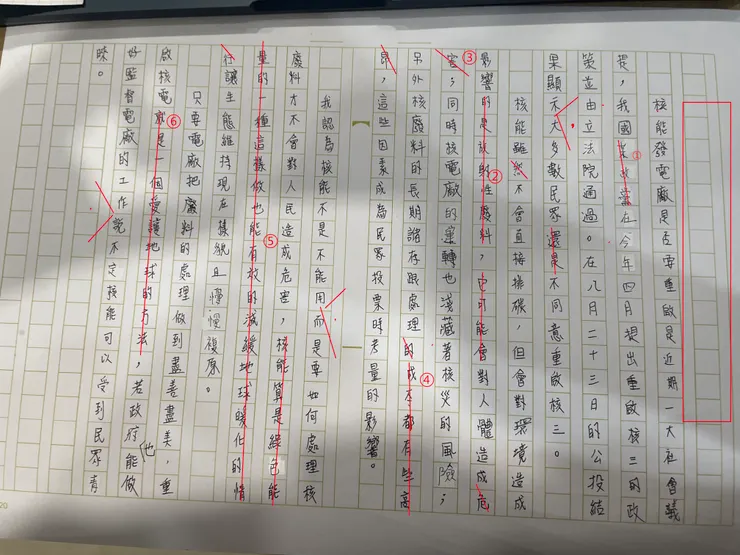 核能發電廠是否要重啟是近期一大社會議
提,我國某政黨在今年四月提出重啟核三的政
策並由立法院通過。在八月二十三日的公投結
果顯示大多數民眾還是不同意重啟核三。
核能雖然不會直接排碳,但會對環境造成
影響的是放射性廢料,它可能會對人體造成危
害;同時核電廠的運轉也淺藏著核災的風險;
另外核廢料的長期諸存跟處理的成本都有些高
昂,這些因素成為民眾投票時考量的影響。
我認為核能不是不能用而是要如何處理核
廢料才不會對人民造成危害,核能算是綠色能
量的一種這樣做也能有效的減緩地球暖化的情
行讓生態維持現在樣貌且慢慢復原。
只要電廠把廢料的處理做到盡善盡美,重
啟核電廠是一個愛護地球的方法,若政府也能做
好監督電廠的工作說不定核能可以受到民眾青
睞。
①
②
③
④
⑤
⑥
20